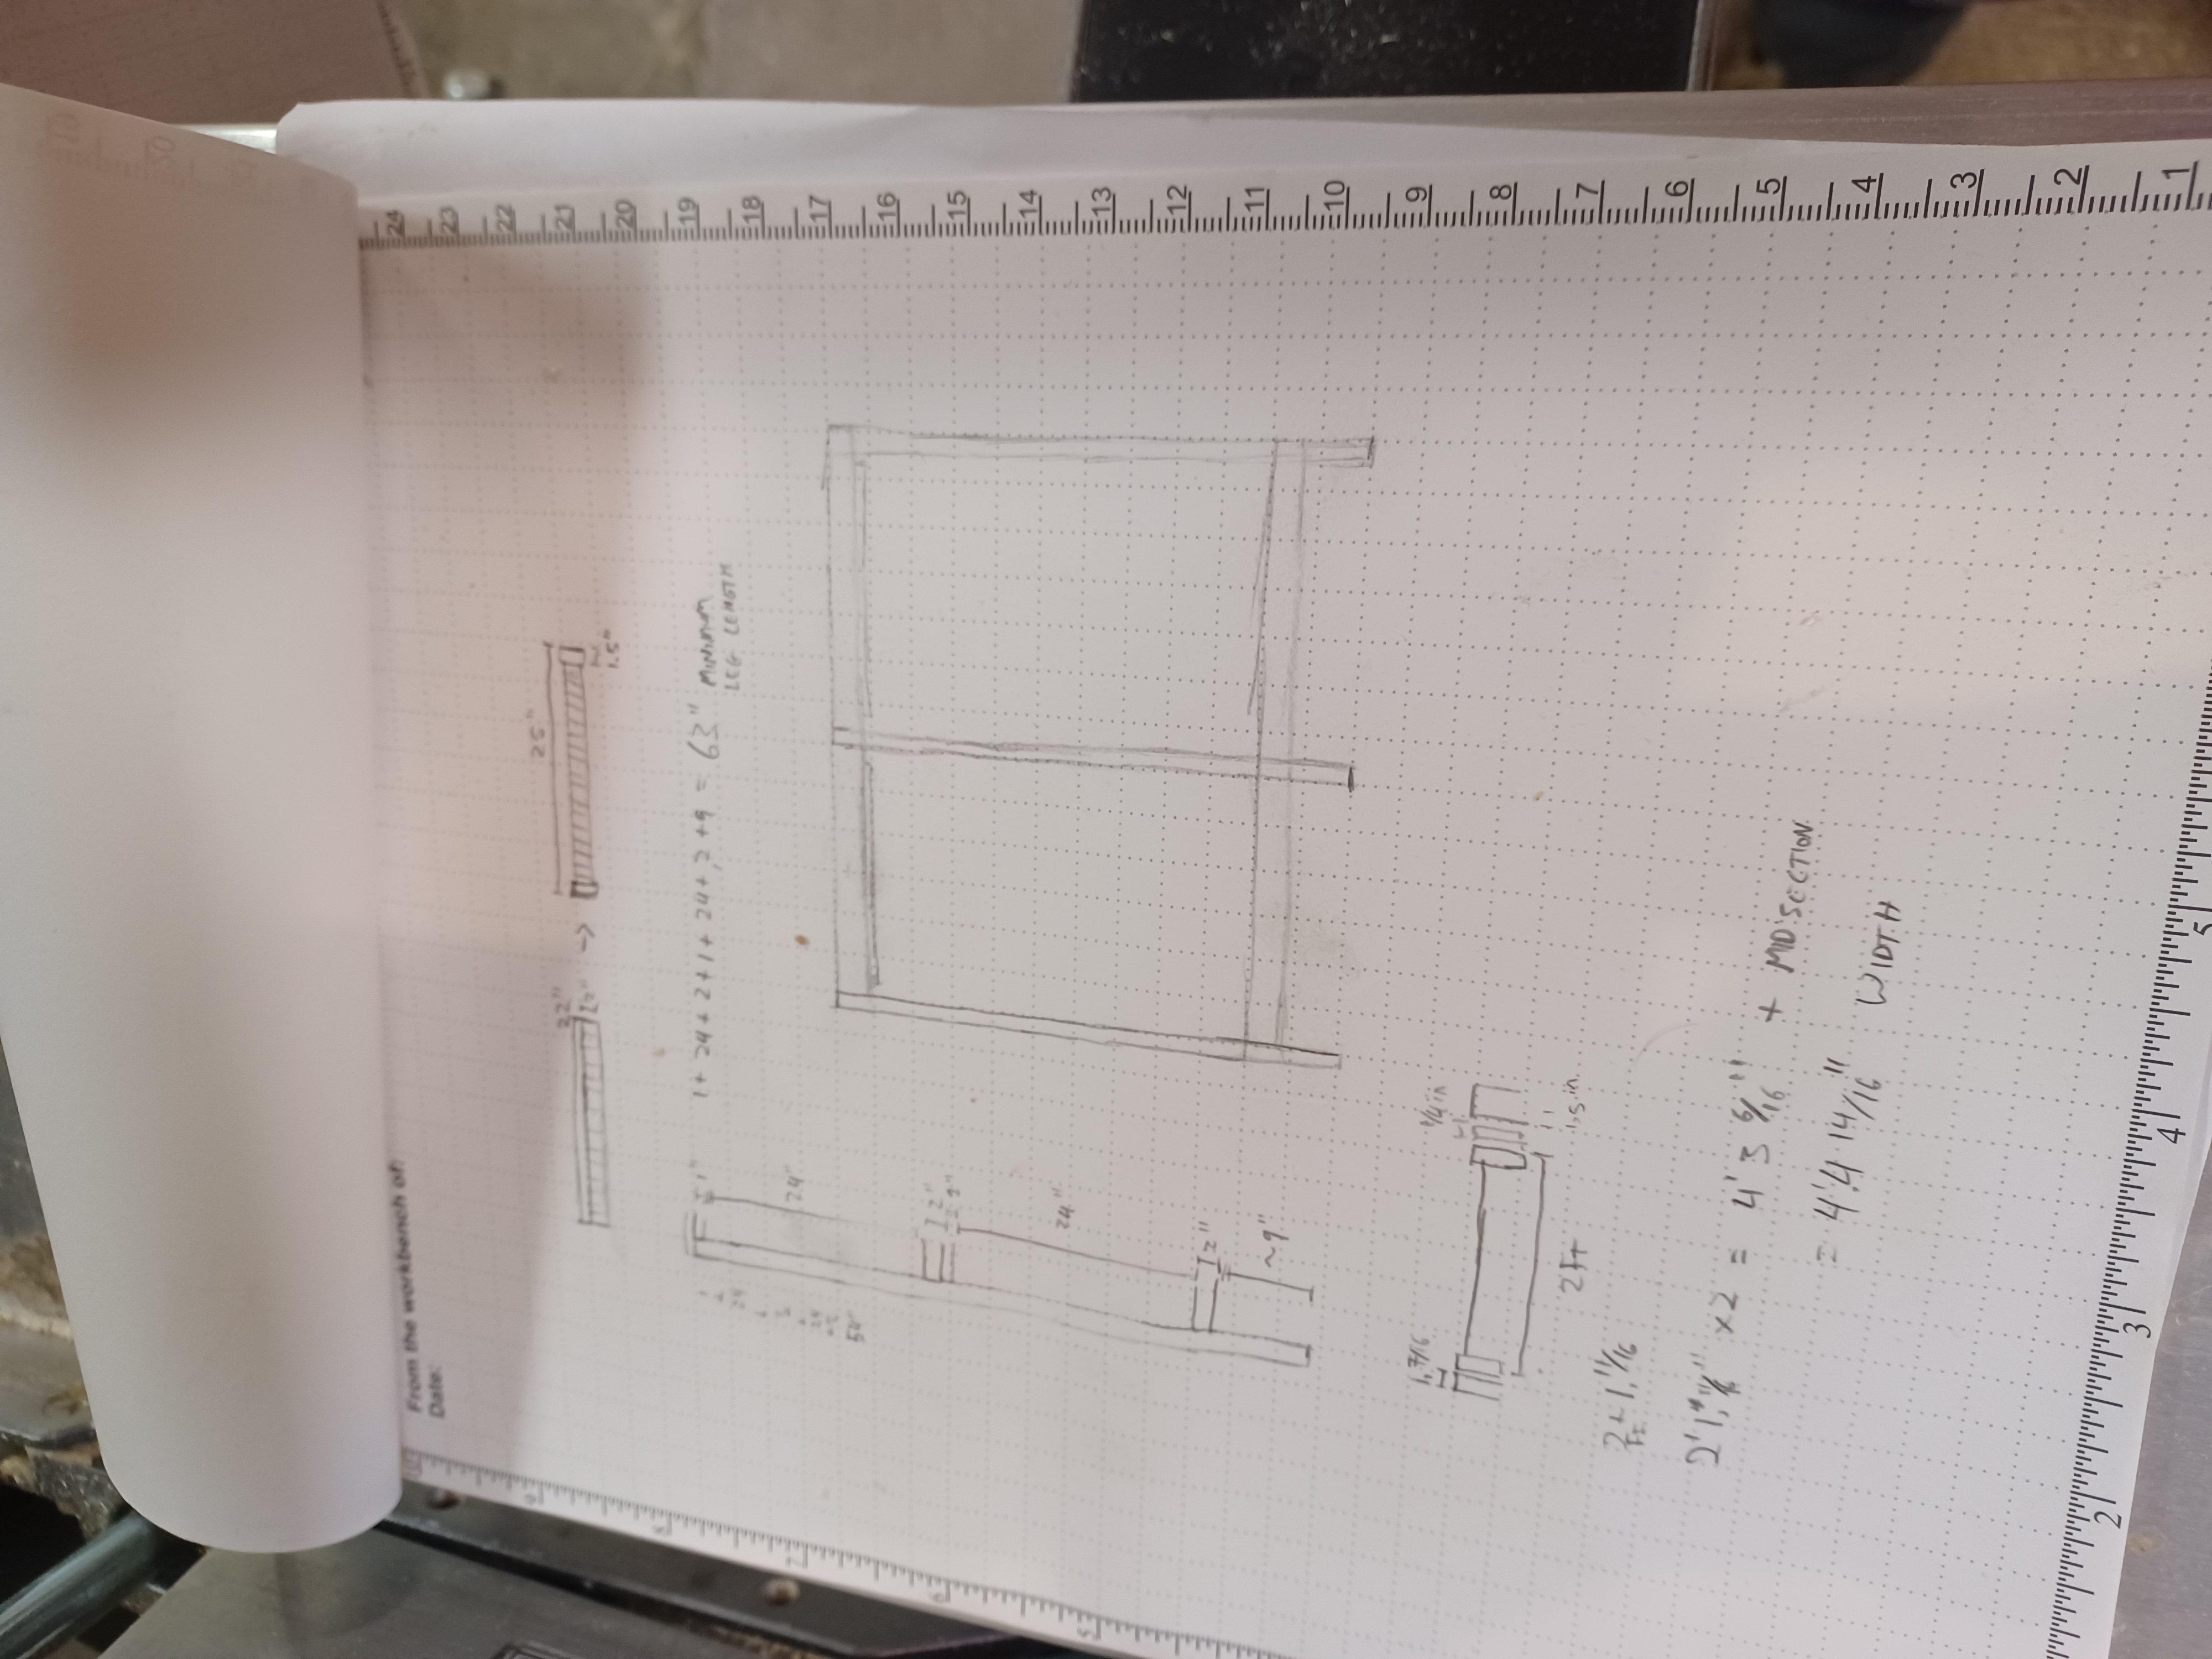 From the workbench of:
Date:
25"
22"
2" →
1.5"
1"
1 + 24 + 2 + 1 + 24 + 2 + 9 = 63" MINIMUM
LEG LENGTH
24"
54"
2"
24"
2"
~9"
1, 7/16
1/4 in
2 FT
1.5 in.
2 + 1, 11/16
FT
2' 1, 11/16" x2 = 4' 3 6/16" + MIDSECTION
= 4' 4 14/16" WIDTH
24
23
22
21
20
19
18
17
16
15
14
13
12
11
10
9
8
7
6
5
4
3
2
1
2
3
4
5